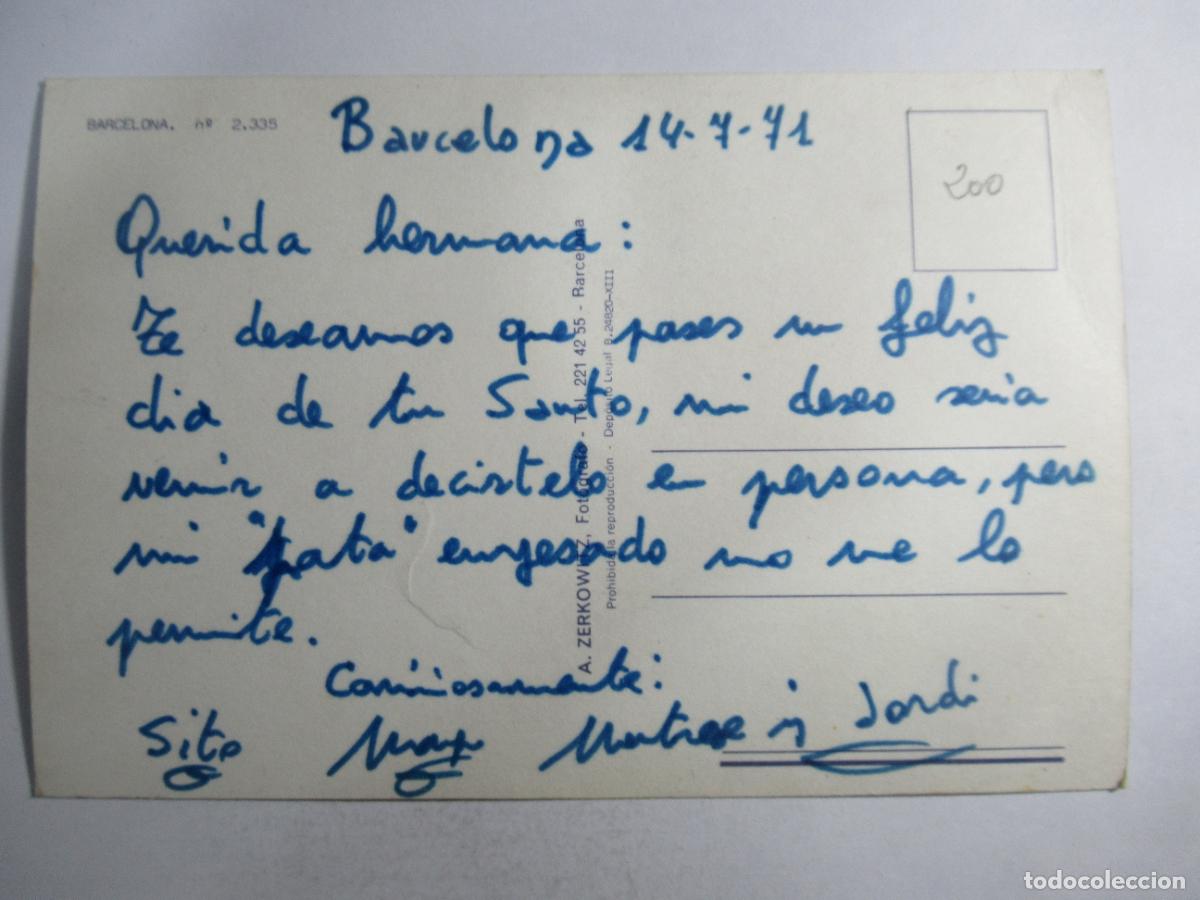 BARCELONA. nº 2.335
Barcelona 14-7-71
200
Querida hermana:
Te deseamos que pases un feliz
dia de tu Santo, mi deseo seria
venir a decirtelo en persona, pero
mi "pata" enyesado no me lo
permite.
Cariñosamente:
Sito Montse y Jordi
A. ZERKOWITZ, Fotógrafo - Tel. 221 42 55 - Barcelona
Prohibida la reproducción - Depósito Legal B.24820-XIII
todocoleccion